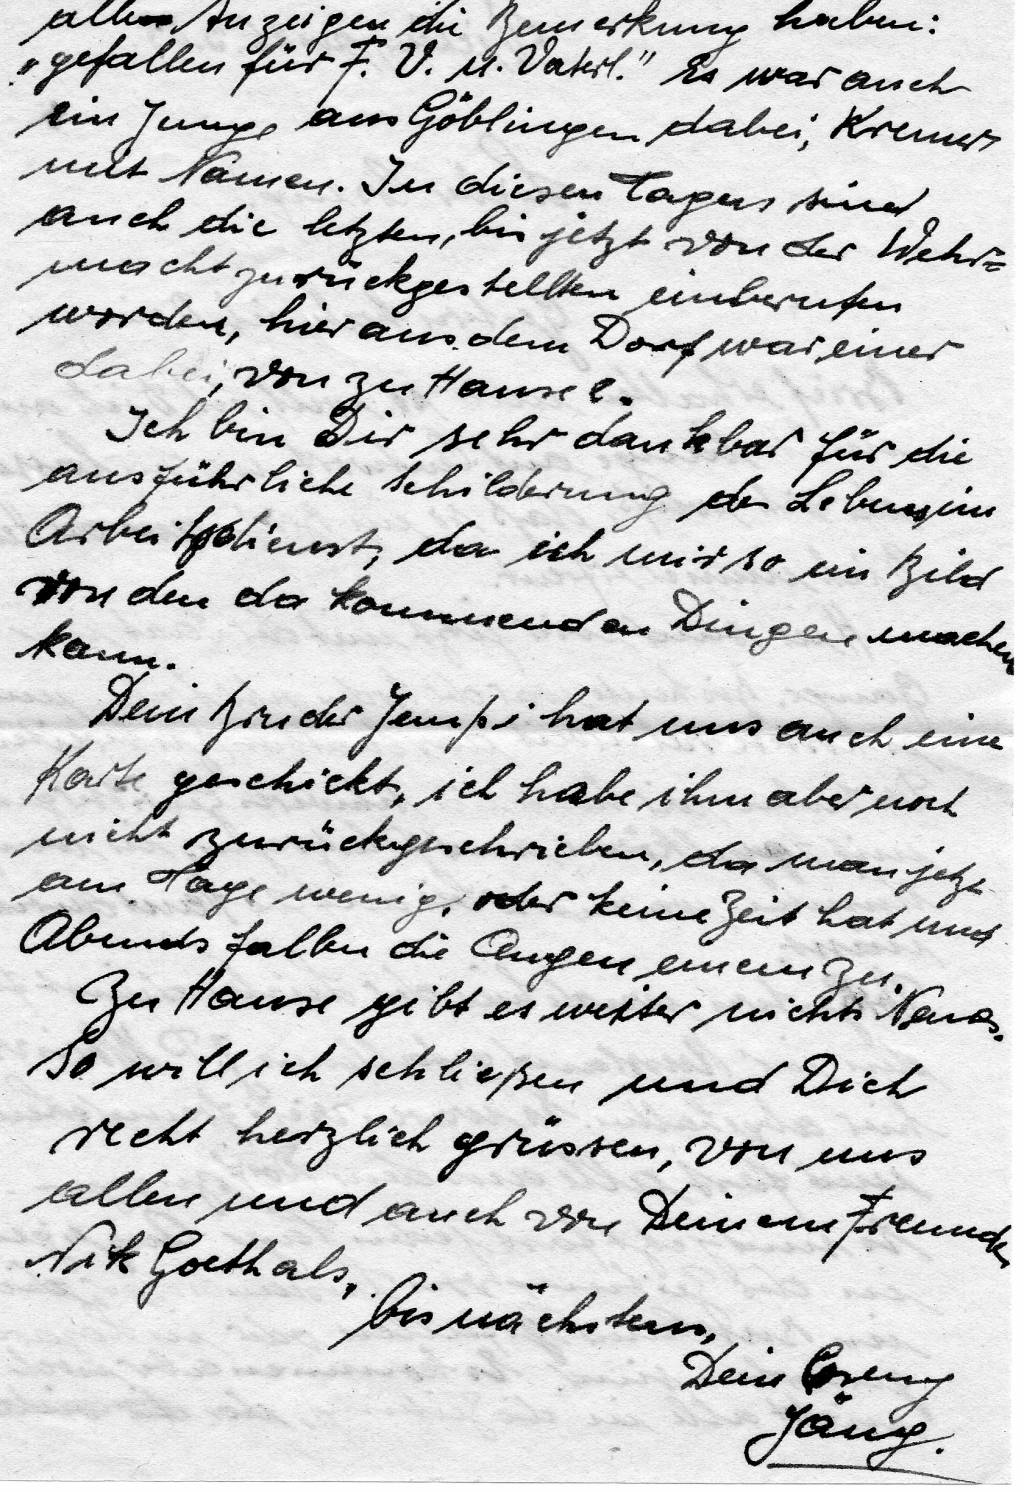 allen Anzeigen die Bemerkung haben:
„gefallen für F. V. u. Vaterl." Es war auch
ein Junge aus Göblingen dabei, Kremer
mit Namen. In diesen Tagen sind
auch die letzten, bis jetzt von der Wehr=
macht zurückgestellten einberufen
worden, hier aus dem Dorf war einer
dabei, von zu Hause 2.
Ich bin Dir sehr dankbar für die
ausführliche Schilderung des Lebens im
Arbeitsdienst, da ich mir so ein Bild
von den da kommenden Dingen machen
kann.
Dein Bruder Jempi hat uns auch eine
Karte geschickt, ich habe ihm aber noch
nicht zurückgeschrieben, da man jetzt
am Tage wenig, oder keine Zeit hat und
Abends fallen die Augen einem zu.
Zu Hause gibt es weiter nichts Neues.
So will ich schließen und Dich
recht herzlich grüssen, von uns
allen und auch von Deinem Freunde
Nik Goethals,
bis nächstens,
Dein
Jäng.